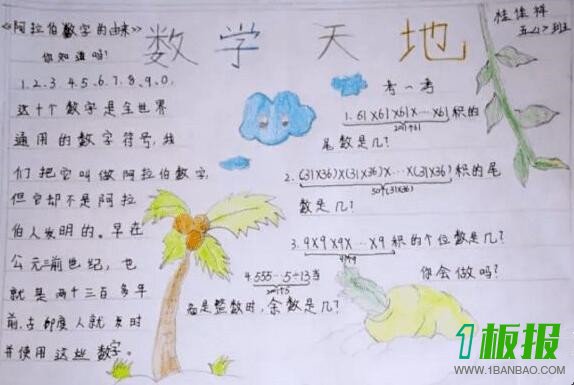 数学天地
桂佳样
五<1>班
《阿拉伯数字的由来》
你知道吗?
1、2、3、4、5、6、7、8、9、0,
这十个数字是全世界
通用的数字符号,我
们把它叫做阿拉伯数字,
但它却不是阿拉
伯人发明的。早在
公元三前世纪,也
就是两千三百多年
前,古印度人就发明
并使用这些数字。
考一考
1. 61×61×61×…×61积的
尾数是几?
2. (31×36)×(31×36)×…×(31×36)积的尾
50个(31×36)
数是几?
3. 9×9×9×…×9积的个位数是几?
4. 555…5÷13当
商是整数时,余数是几?
你会做吗?
1板报
WWW.1BANBAO.COM